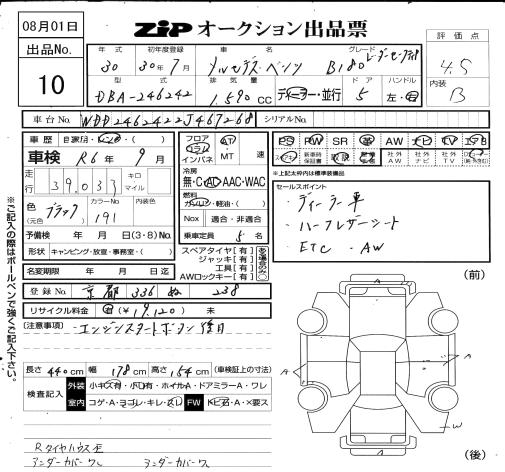 08月01日
出品No.
10
ZIP オークション出品票
評価点
4.5
内装
B
年式 初年度登録 車名 グレード
30 30年7月 メルセデス・ベンツ B180
型式 排気量 ドア ハンドル
DBA-246242 1,590cc ディーラー・並行 5 左・右
車台No. WDD2462422J467268 シリアルNo.
車歴 自家用・レンタ
車検 R6年9月
走行 39,037 キロ マイル
色(元色) ブラック カラーNo 191
予備検 年 月 日(3・8)No.
形状 キャンピング・放宣・事務室・( )
名変期限 年 月 日迄
フロア コラム インパネ AT ・MT 速
冷房 無・C・AC・AAC・WAC
燃料 ガソリン・軽油・( )
Nox 適合・非適合
乗車定員 5名
スペアタイヤ[有]
ジャッキ[有]
工具[有]
AWロックキー[有]
PS PW SR 革 AW ナビ TV
社外AW 社外ナビ 社外TV
※上記太枠内は標準装備品
セールスポイント
・ディーラー車
・ハーフレザーシート
・ETC ・AW
登録No. 京都 336 ぬ 238
リサイクル料金 有(¥19,120) 未
(注意事項) エンジンスタートボタン後目
長さ 440cm 幅 178cm 高さ 154cm (車検証上の寸法)
検査記入 外装 小キズ有・小凹有・ホイルA・ドアミラーA・ワレ
室内 コゲ・A・ヨゴレ・キレ・スレ FW トビ石・A・X要ス
Rタイヤハウス
アンダーカバーワレ アンダーカバーワ
※ご記入の際はボールペンで強くご記入下さい。
(前)
A
A
A
W
(後)